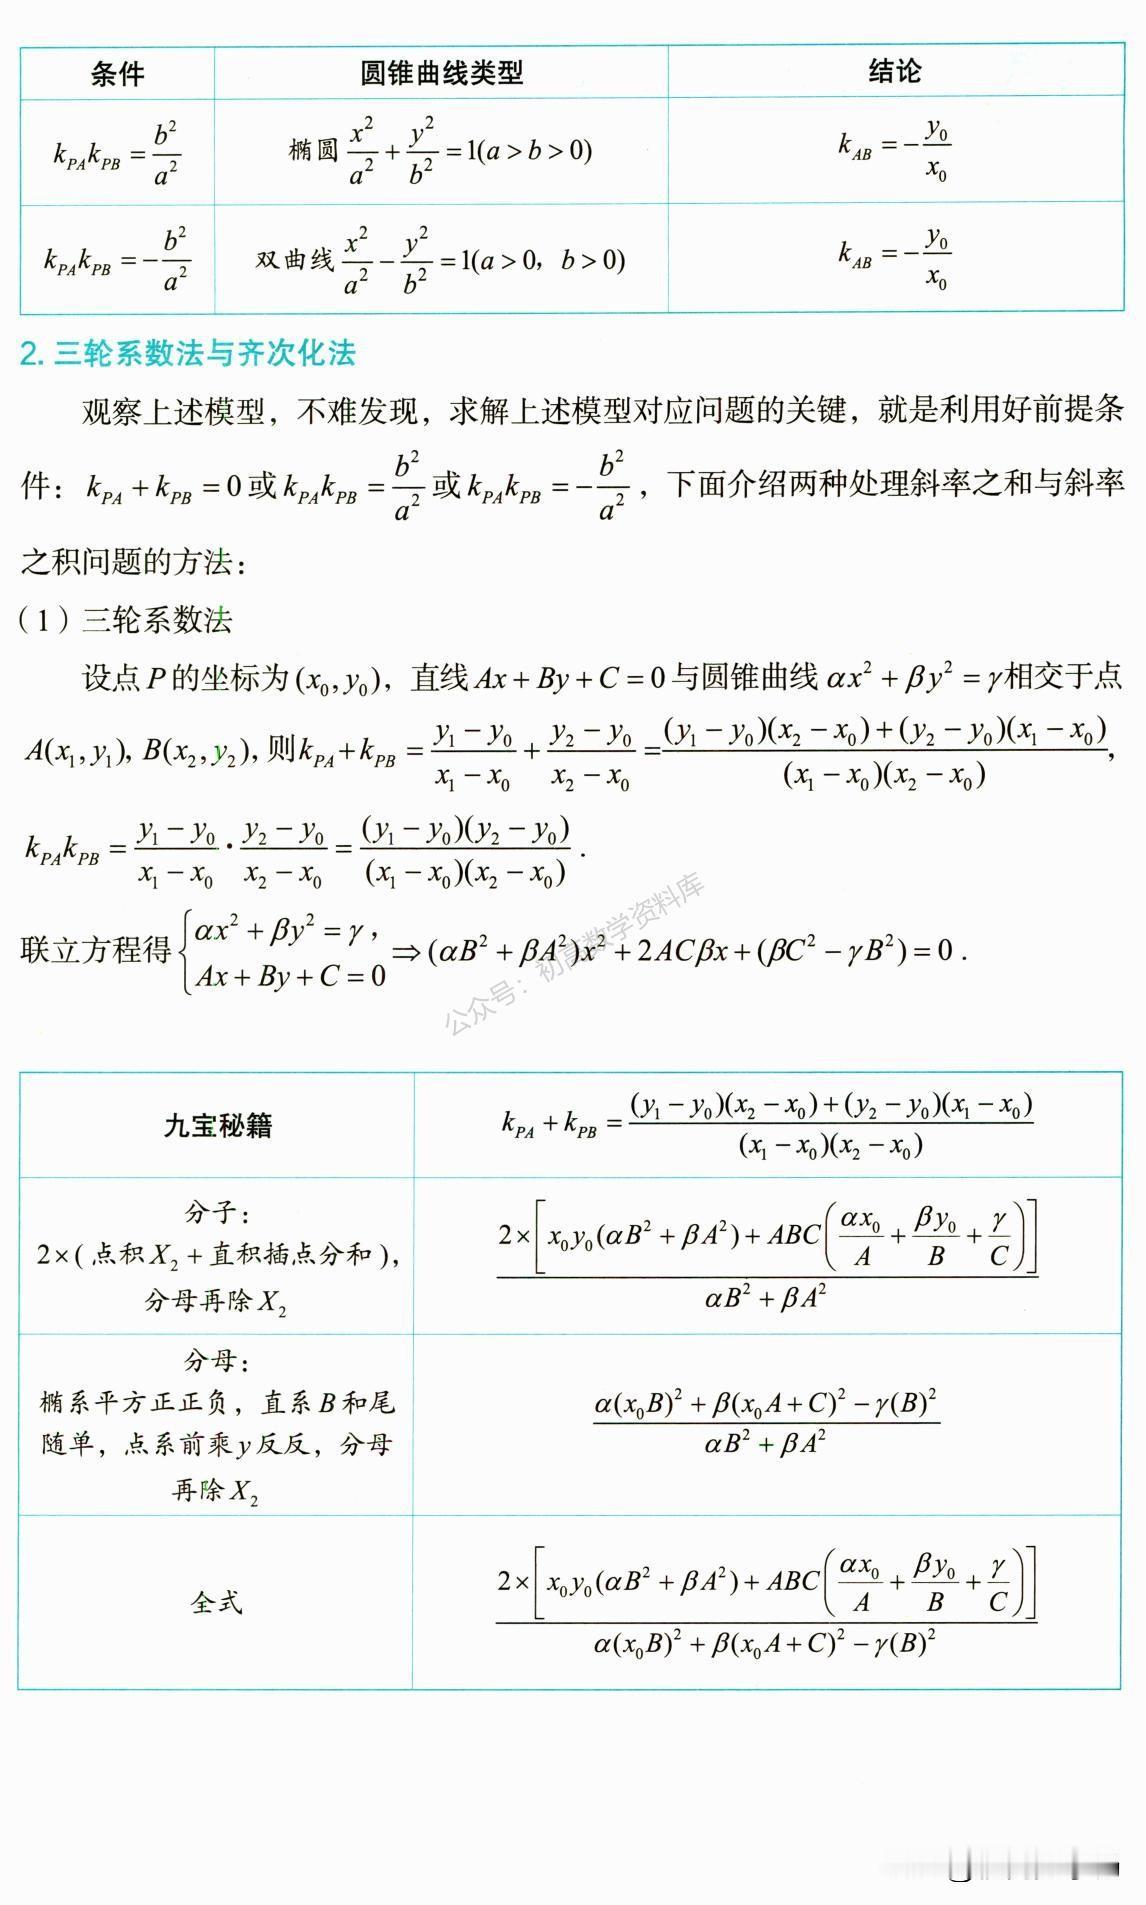 条件 圆锥曲线类型 结论
$k_{PA}k_{PB}=\frac{b^2}{a^2}$ 椭圆$\frac{x^2}{a^2}+\frac{y^2}{b^2}=1(a>b>0)$ $k_{AB}=-\frac{y_0}{x_0}$
$k_{PA}k_{PB}=-\frac{b^2}{a^2}$ 双曲线$\frac{x^2}{a^2}-\frac{y^2}{b^2}=1(a>0，b>0)$ $k_{AB}=-\frac{y_0}{x_0}$
2. 三轮系数法与齐次化法
观察上述模型，不难发现，求解上述模型对应问题的关键，就是利用好前提条
件：$k_{PA}+k_{PB}=0$或$k_{PA}k_{PB}=\frac{b^2}{a^2}$或$k_{PA}k_{PB}=-\frac{b^2}{a^2}$，下面介绍两种处理斜率之和与斜率
之积问题的方法：
（1）三轮系数法
设点P的坐标为$(x_0,y_0)$，直线$Ax+By+C=0$与圆锥曲线$\alpha x^2+\beta y^2=\gamma$相交于点
$A(x_1,y_1)$, $B(x_2,y_2)$, 则$k_{PA}+k_{PB}=\frac{y_1-y_0}{x_1-x_0}+\frac{y_2-y_0}{x_2-x_0}=\frac{(y_1-y_0)(x_2-x_0)+(y_2-y_0)(x_1-x_0)}{(x_1-x_0)(x_2-x_0)}$,
$k_{PA}k_{PB}=\frac{y_1-y_0}{x_1-x_0}\cdot\frac{y_2-y_0}{x_2-x_0}=\frac{(y_1-y_0)(y_2-y_0)}{(x_1-x_0)(x_2-x_0)}$.
联立方程得$\begin{cases}\alpha x^2+\beta y^2=\gamma，\\Ax+By+C=0\end{cases}\Rightarrow(\alpha B^2+\beta A^2)x^2+2AC\beta x+(\beta C^2-\gamma B^2)=0$.
公众号：初高数学资料库
九宝秘籍 $k_{PA}+k_{PB}=\frac{(y_1-y_0)(x_2-x_0)+(y_2-y_0)(x_1-x_0)}{(x_1-x_0)(x_2-x_0)}$
分子：
2×(点积$X_2$+直积插点分和)，
分母再除$X_2$
$\frac{2\times\left[x_0y_0(\alpha B^2+\beta A^2)+ABC\left(\frac{\alpha x_0}{A}+\frac{\beta y_0}{B}+\frac{\gamma}{C}\right)\right]}{\alpha B^2+\beta A^2}$
分母：
椭系平方正正负，直系B和尾
随单，点系前乘y反反，分母
再除$X_2$
$\frac{\alpha(x_0B)^2+\beta(x_0A+C)^2-\gamma(B)^2}{\alpha B^2+\beta A^2}$
全式
$\frac{2\times\left[x_0y_0(\alpha B^2+\beta A^2)+ABC\left(\frac{\alpha x_0}{A}+\frac{\beta y_0}{B}+\frac{\gamma}{C}\right)\right]}{\alpha(x_0B)^2+\beta(x_0A+C)^2-\gamma(B)^2}$